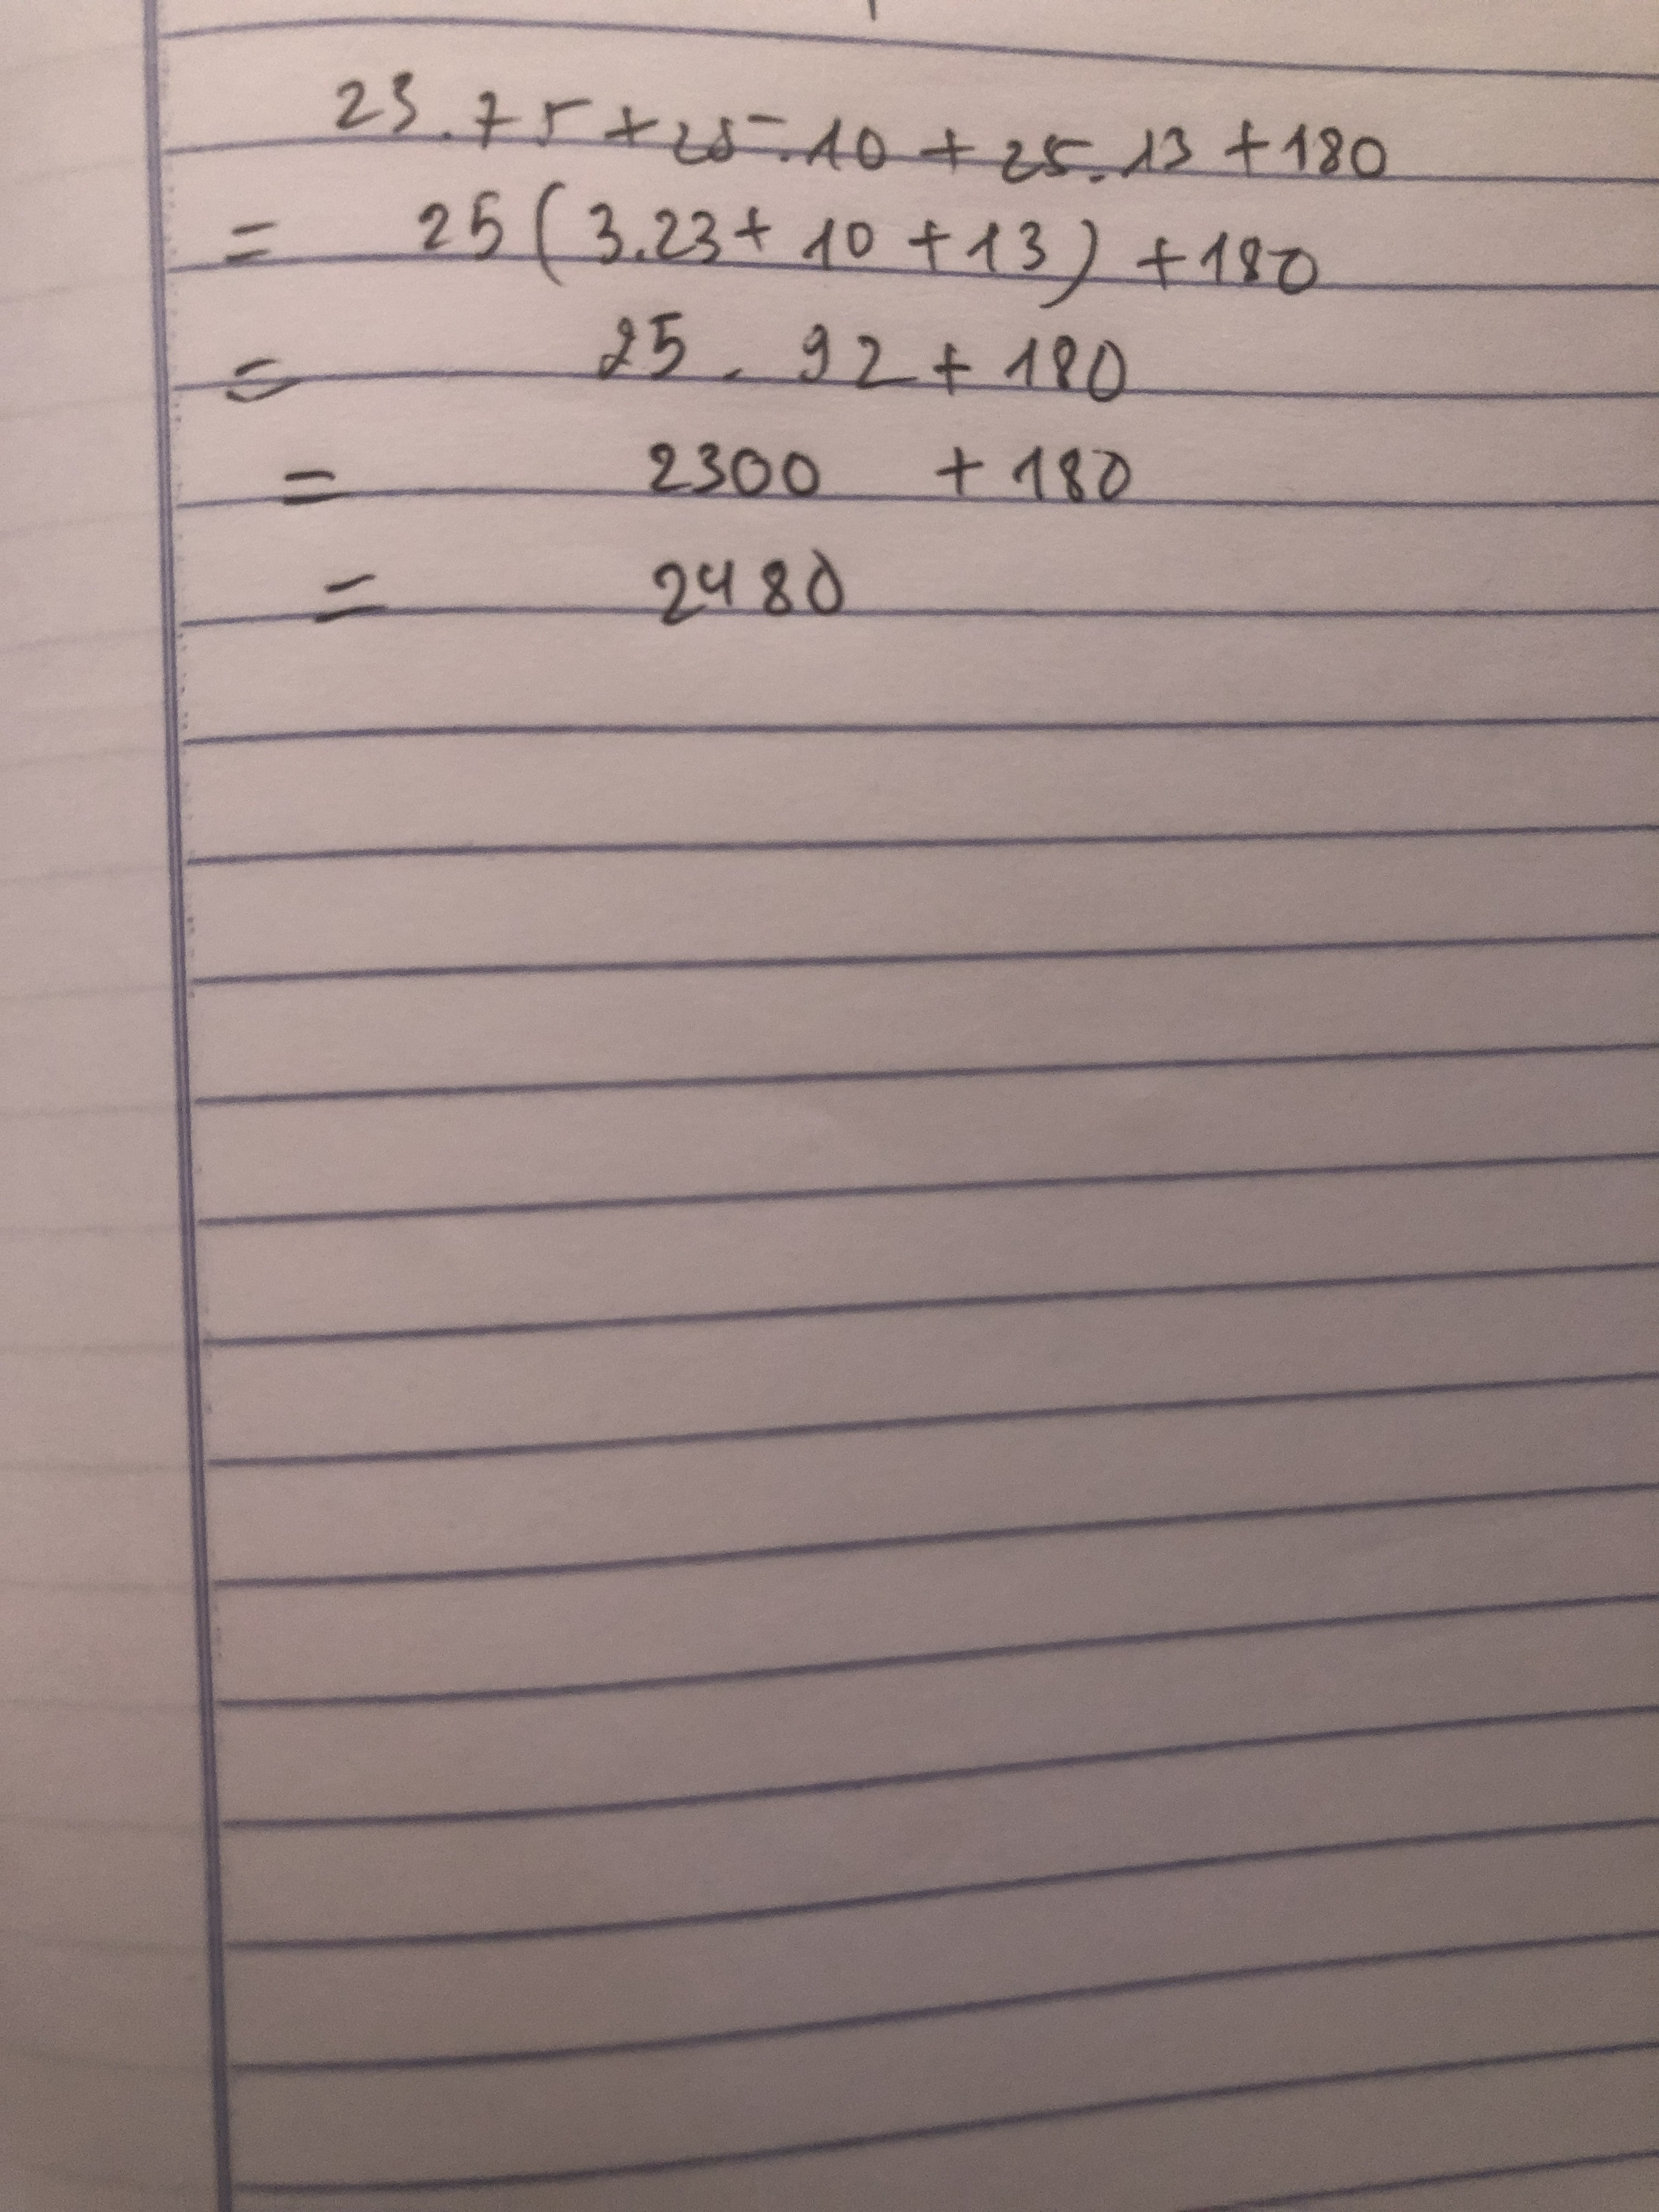 23.75+25.10+25.13+180
= 25(3.23+10+13)+180
= 25.92+180
= 2300 +180
= 2480